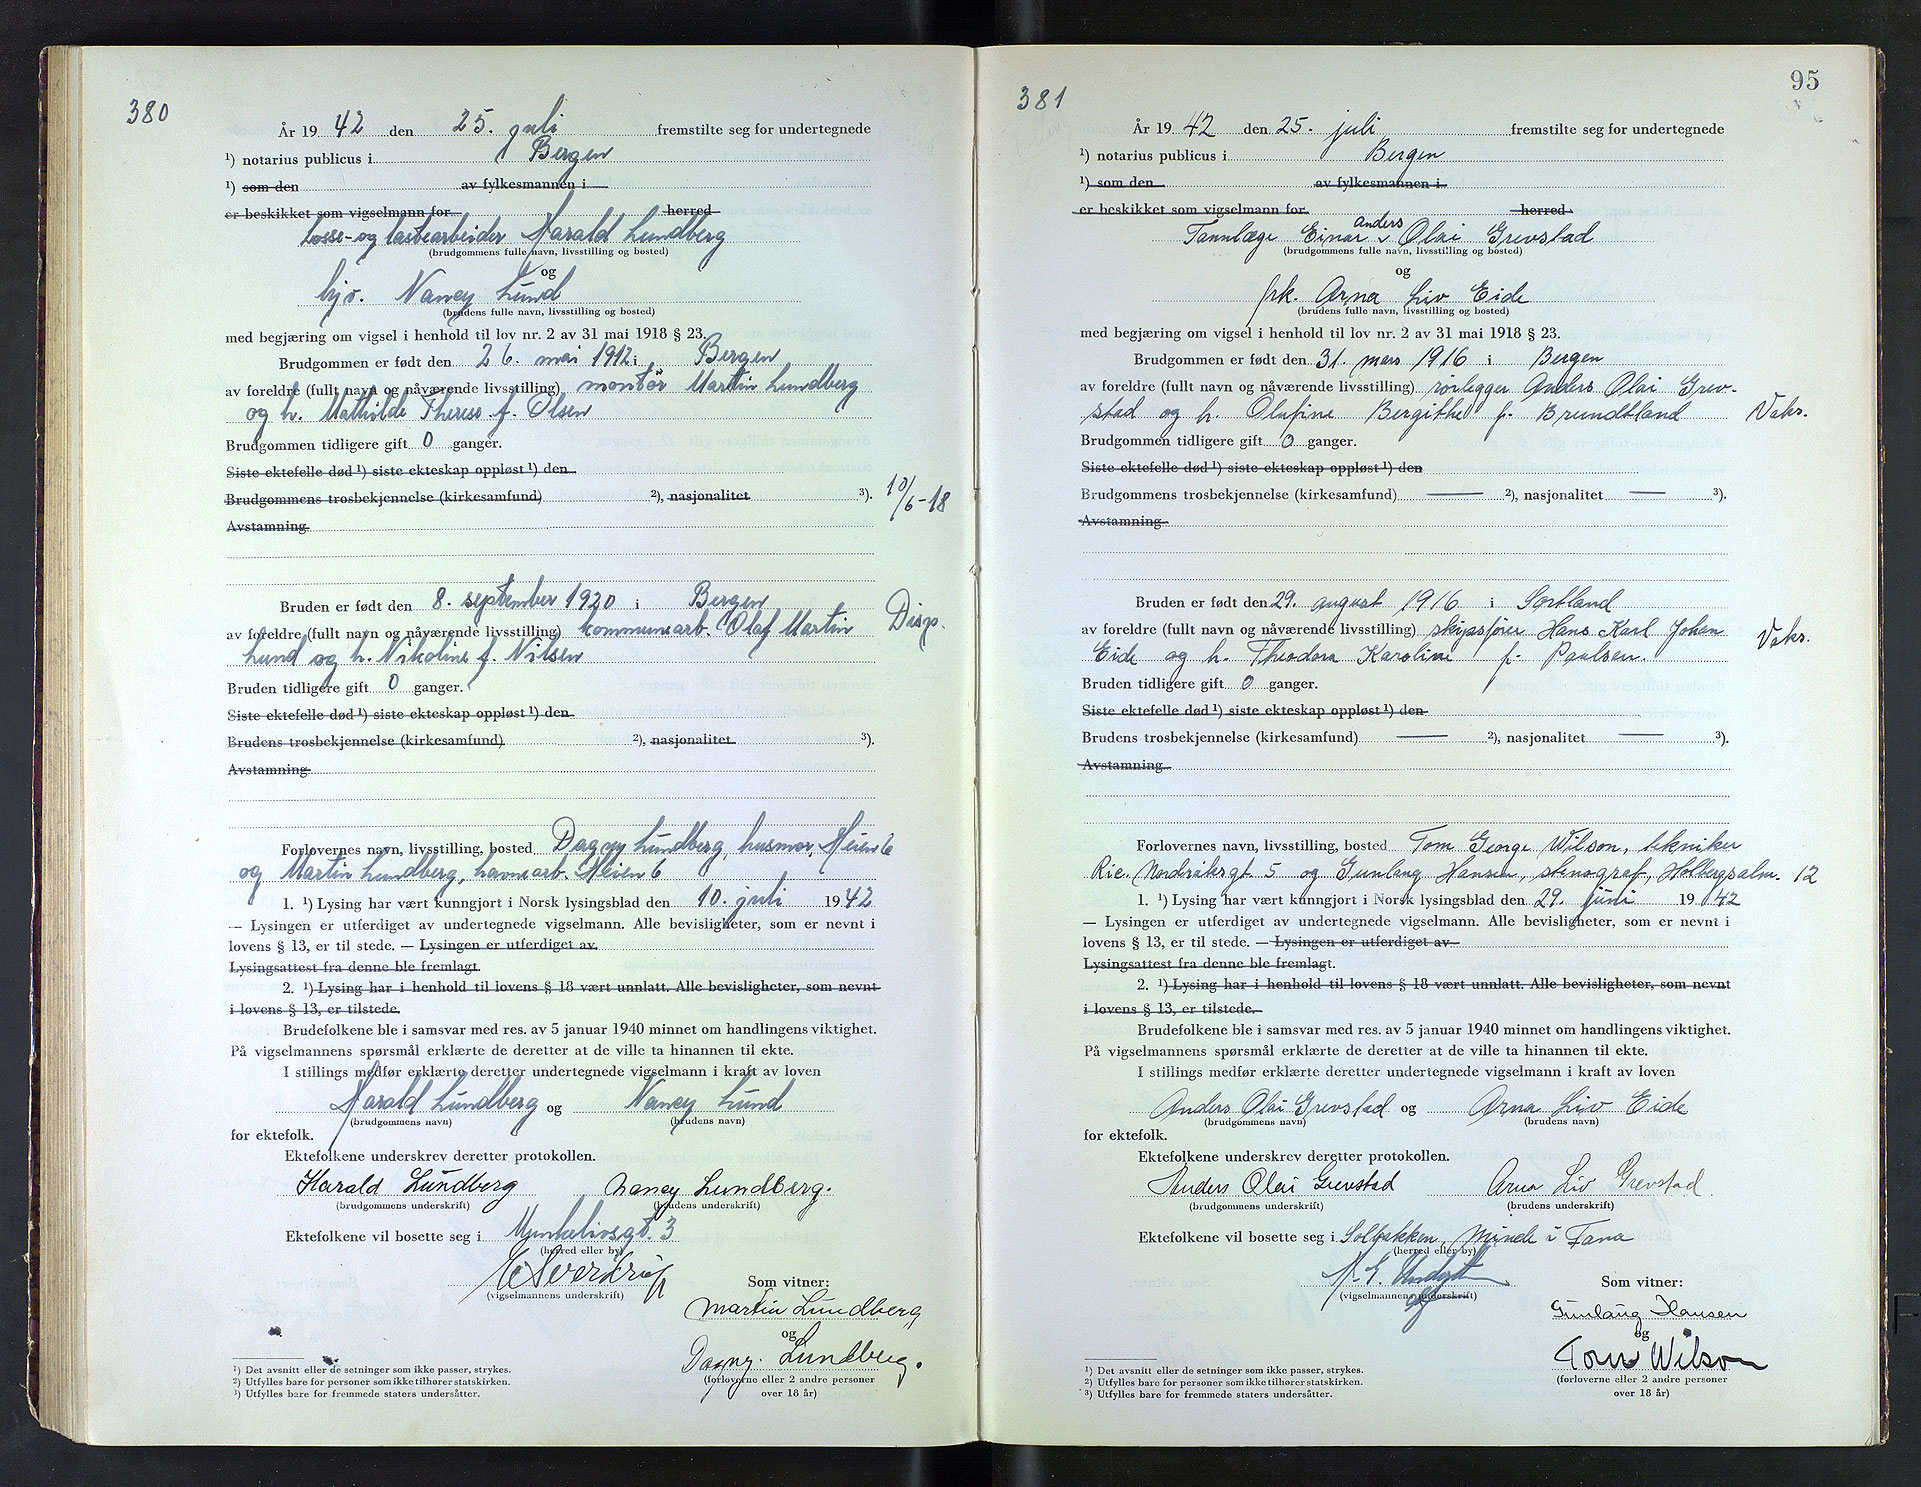 380
År 19 42 den 25. juli fremstilte seg for undertegnede
¹) notarius publicus i Bergen
¹) som den av fylkesmannen i
er beskikket som vigselmann for herred
Losse- og lastearbeider Harald Lundberg
(brudgommens fulle navn, livsstilling og bosted)
og
Nancy Lund
(brudens fulle navn, livsstilling og bosted)
med begjæring om vigsel i henhold til lov nr. 2 av 31 mai 1918 § 23.
Brudgommen er født den 26. mai 1912 i Bergen
av foreldre (fullt navn og nåværende livsstilling) montør Martin Lundberg
og h. Mathilde Therese f. Olsen
Brudgommen tidligere gift 0 ganger.
Siste ektefelle død ¹) siste ekteskap oppløst ¹) den
Brudgommens trosbekjennelse (kirkesamfund) ²), nasjonalitet ³).
10/6-18
Avstamning
Bruden er født den 8. september 1920 i Bergen
Disp.
av foreldre (fullt navn og nåværende livsstilling) kommunearb. Olaf Martin
Lund og h. Nikoline f. Nilsen
Bruden tidligere gift 0 ganger.
Siste ektefelle død ¹) siste ekteskap oppløst ¹) den
Brudens trosbekjennelse (kirkesamfund) ²), nasjonalitet ³).
Avstamning
Forlovernes navn, livsstilling, bosted Dagny Lundberg, husmor, Heien 6
og Martin Lundberg, havnearb. Heien 6
1. ¹) Lysing har vært kunngjort i Norsk lysingsblad den 10. juli 1942
— Lysingen er utferdiget av undertegnede vigselmann. Alle bevisligheter, som er nevnt i
lovens § 13, er til stede. — Lysingen er utferdiget av
Lysingsattest fra denne ble fremlagt
2. ¹) Lysing har i henhold til lovens § 18 vært unnlatt. Alle bevisligheter, som nevnt
i lovens § 13, er tilstede.
Brudefolkene ble i samsvar med res. av 5 januar 1940 minnet om handlingens viktighet.
På vigselmannens spørsmål erklærte de deretter at de ville ta hinannen til ekte.
I stillings medfør erklærte deretter undertegnede vigselmann i kraft av loven
Harald Lundberg og Nancy Lund
(brudgommens navn) (brudens navn)
for ektefolk.
Ektefolkene underskrev deretter protokollen.
Harald Lundberg Nancy Lundberg.
(brudgommens underskrift) (brudens underskrift)
Ektefolkene vil bosette seg i Munkelivsgt. 3
(herred eller by)
(vigselmannens underskrift)
Som vitner:
Martin Lundberg
og
Dagny. Lundberg.
(forloverne eller 2 andre personer
over 18 år)
¹) Det avsnitt eller de setninger som ikke passer, strykes.
²) Utfylles bare for personer som ikke tilhører statskirken.
³) Utfylles bare for fremmede staters undersåtter.
95
381
År 19 42 den 25. juli fremstilte seg for undertegnede
¹) notarius publicus i Bergen
¹) som den av fylkesmannen i
er beskikket som vigselmann for herred
anders
Tannlæge Einar Olai Grevstad
(brudgommens fulle navn, livsstilling og bosted)
og
frk. Arna Liv Eide
(brudens fulle navn, livsstilling og bosted)
med begjæring om vigsel i henhold til lov nr. 2 av 31 mai 1918 § 23.
Brudgommen er født den 31. mars 1916 i Bergen
av foreldre (fullt navn og nåværende livsstilling) rørlegger Anders Olai Grev-
stad og h. Olufine Bergithe f. Brundtland
Vaks.
Brudgommen tidligere gift 0 ganger.
Siste ektefelle død ¹) siste ekteskap oppløst ¹) den
Brudgommens trosbekjennelse (kirkesamfund) — ²), nasjonalitet — ³).
Avstamning
Bruden er født den 29. august 1916 i Sortland
av foreldre (fullt navn og nåværende livsstilling) skipsfører Hans Karl Johan
Vaks.
Eide og h. Theodora Karoline f. Paulsen.
Bruden tidligere gift 0 ganger.
Siste ektefelle død ¹) siste ekteskap oppløst ¹) den
Brudens trosbekjennelse (kirkesamfund) — ²), nasjonalitet — ³).
Avstamning
Forlovernes navn, livsstilling, bosted Tom George Wilson, tekniker
Ric. Nordråksgt 5 og Gunlaug Hansen, stenograf, Holbergsalm. 12
1. ¹) Lysing har vært kunngjort i Norsk lysingsblad den 29. juni 19 42
— Lysingen er utferdiget av undertegnede vigselmann. Alle bevisligheter, som er nevnt i
lovens § 13, er til stede. — Lysingen er utferdiget av
Lysingsattest fra denne ble fremlagt.
2. ¹) Lysing har i henhold til lovens § 18 vært unnlatt. Alle bevisligheter, som nevnt
i lovens § 13, er tilstede.
Brudefolkene ble i samsvar med res. av 5 januar 1940 minnet om handlingens viktighet.
På vigselmannens spørsmål erklærte de deretter at de ville ta hinannen til ekte.
I stillings medfør erklærte deretter undertegnede vigselmann i kraft av loven
Anders Olai Grevstad og Arna Liv Eide
(brudgommens navn) (brudens navn)
for ektefolk.
Ektefolkene underskrev deretter protokollen.
Anders Olai Grevstad Arna Liv Grevstad.
(brudgommens underskrift) (brudens underskrift)
Ektefolkene vil bosette seg i Solbakken, Minde i Fana
(herred eller by)
(vigselmannens underskrift)
Som vitner:
Gunlaug Hansen
og
Tom Wilson
(forloverne eller 2 andre personer
over 18 år)
¹) Det avsnitt eller de setninger som ikke passer, strykes.
²) Utfylles bare for personer som ikke tilhører statskirken.
³) Utfylles bare for fremmede staters undersåtter.